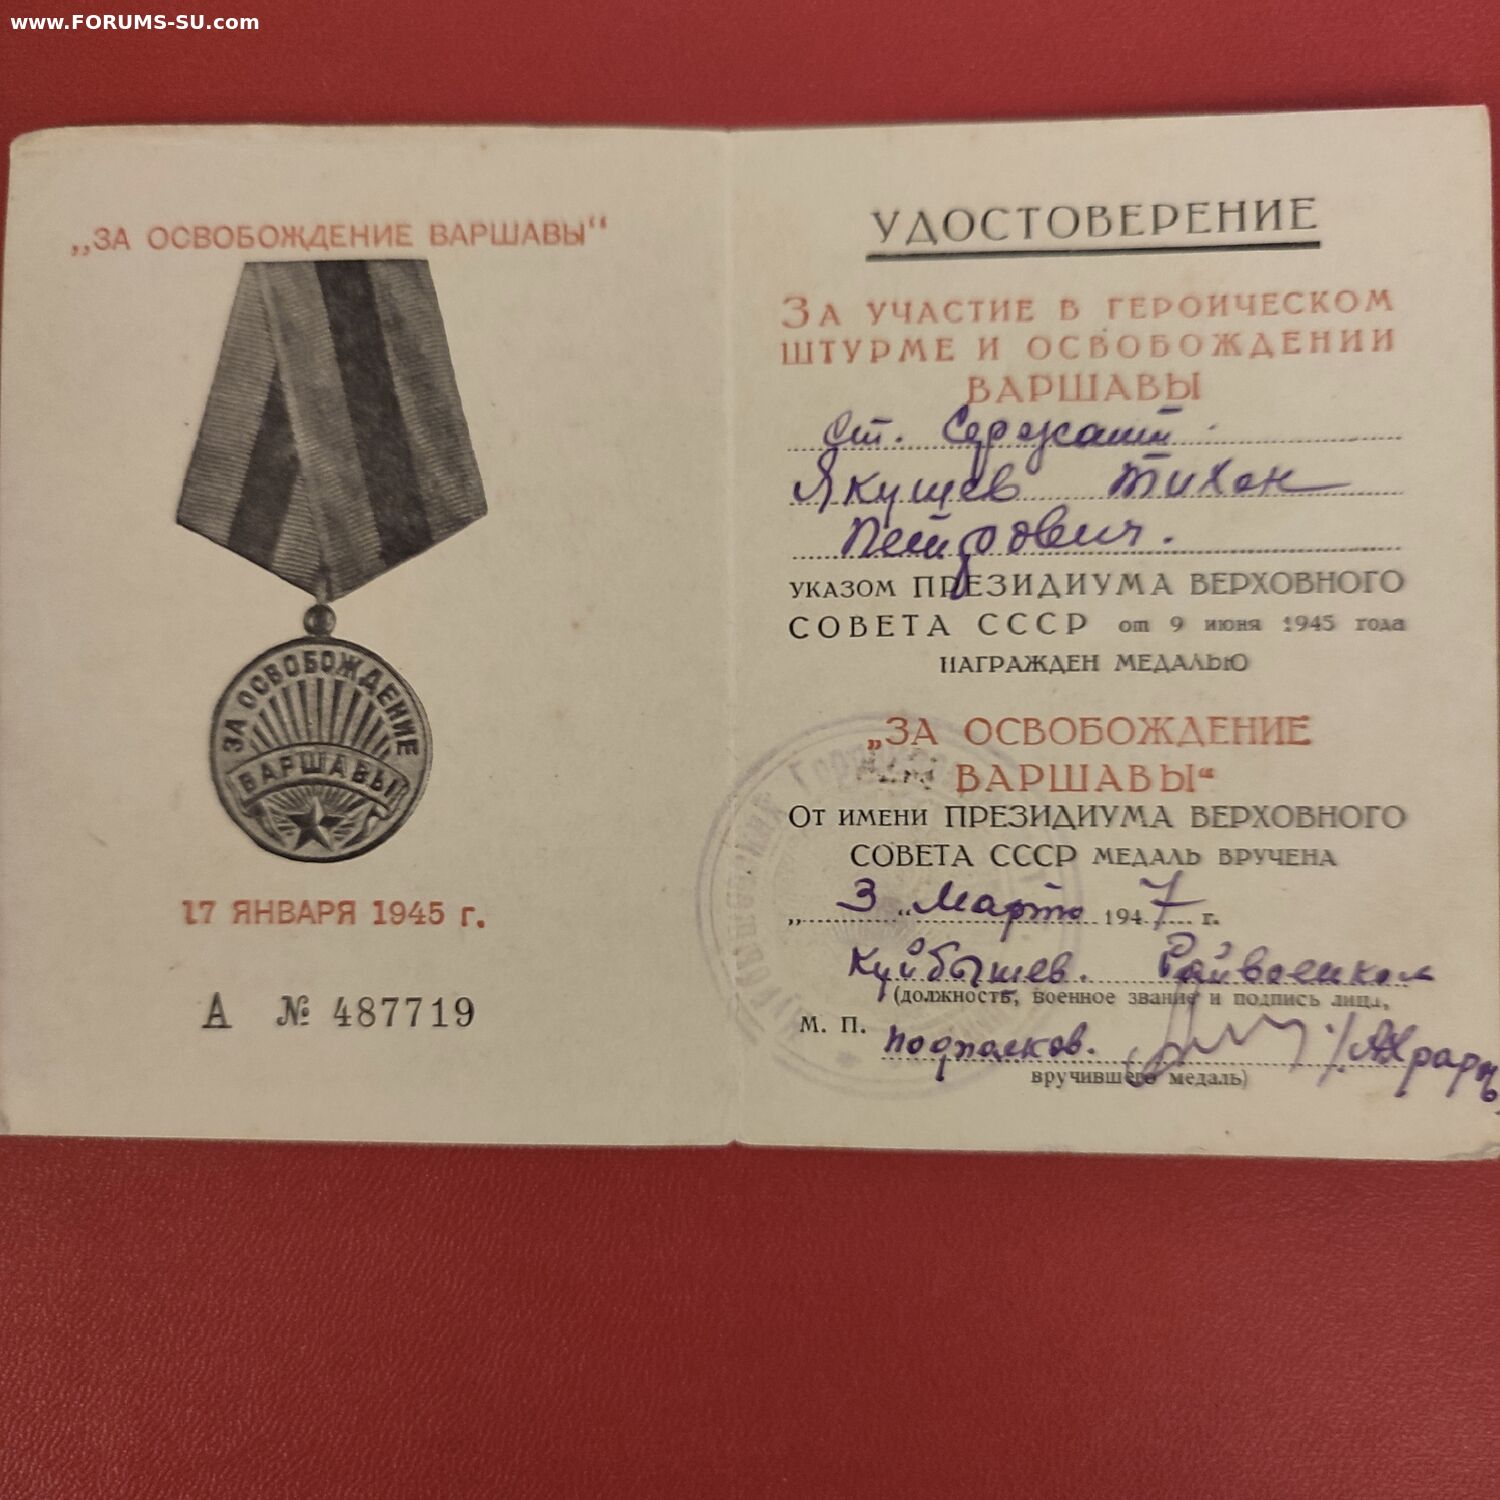 www.FORUMS-SU.com
„ЗА ОСВОБОЖДЕНИЕ ВАРШАВЫ“
ЗА ОСВОБОЖДЕНИЕ
ВАРШАВЫ
17 ЯНВАРЯ 1945 г.
А № 487719
УДОСТОВЕРЕНИЕ
ЗА УЧАСТИЕ В ГЕРОИЧЕСКОМ
ШТУРМЕ И ОСВОБОЖДЕНИИ
ВАРШАВЫ
Ст. Сержант
Якушев Тихон
Петрович.
УКАЗОМ ПРЕЗИДИУМА ВЕРХОВНОГО
СОВЕТА СССР от 9 июня 1945 года
НАГРАЖДЕН МЕДАЛЬЮ
„ЗА ОСВОБОЖДЕНИЕ
ВАРШАВЫ“
ОТ ИМЕНИ ПРЕЗИДИУМА ВЕРХОВНОГО
СОВЕТА СССР МЕДАЛЬ ВРУЧЕНА
„3 „ Марта 1947 г.
Куйбышев. Райвоенком
(должность, военное звание и подпись лица,
М. П. подполков.
вручившего медаль)